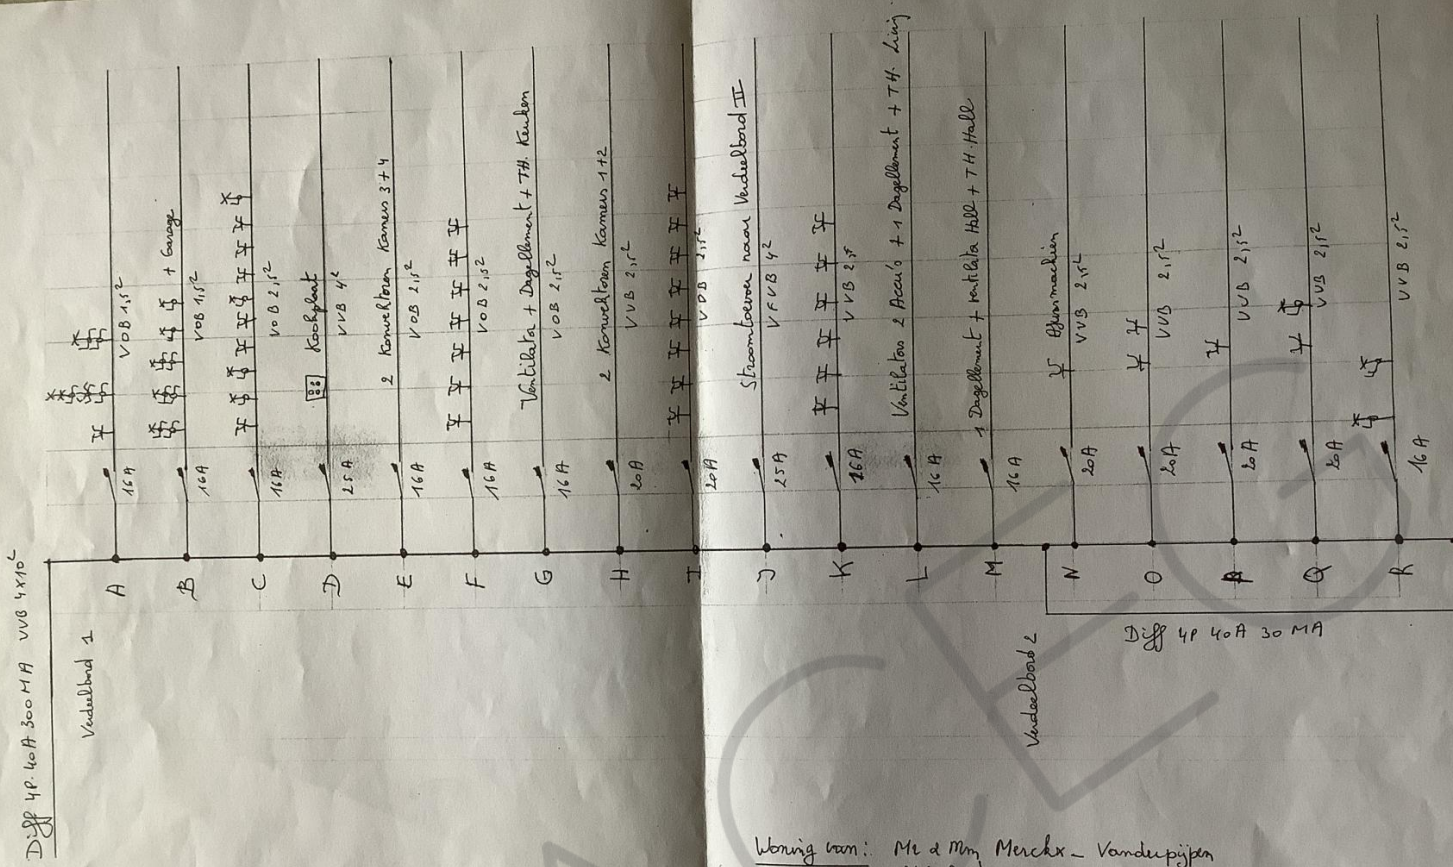 Diff 4P. 40A 300MA VVB 4x10²
Verdeelbord 1
A
16A
VOB 1,5²
B
16A
+ Garage
VOB 1,5²
C
16A
VOB 2,5²
D
25A
Kookplaat
VVB 4²
E
16A
2 Konvektoren Kamers 3+4
VOB 2,5²
F
16A
VOB 2,5²
G
16A
Ventilator + Dagellement + TH. Keuken
VOB 2,5²
H
20A
2 Konvektoren Kamers 1+2
VVB 2,5²
I
20A
VOB 2,5²
J
25A
Stroomtoevoer naar Verdeelbord II
VFVB 4²
K
16A
VVB 2,5
L
16A
Ventilators 2 Accu's + 1 Dagellement + TH. Living
M
16A
1 Dagellement + ventilator Hall + TH. Hall
Verdeelbord 2
Diff 4P 40A 30 MA
N
20A
VVB 2,5²
O
20A
VVB 2,5²
P
20A
VVB 2,5²
Q
20A
VVB 2,5²
R
16A
VVB 2,5²
Woning van: Mr & Mm Merckx - Vanderpijpen